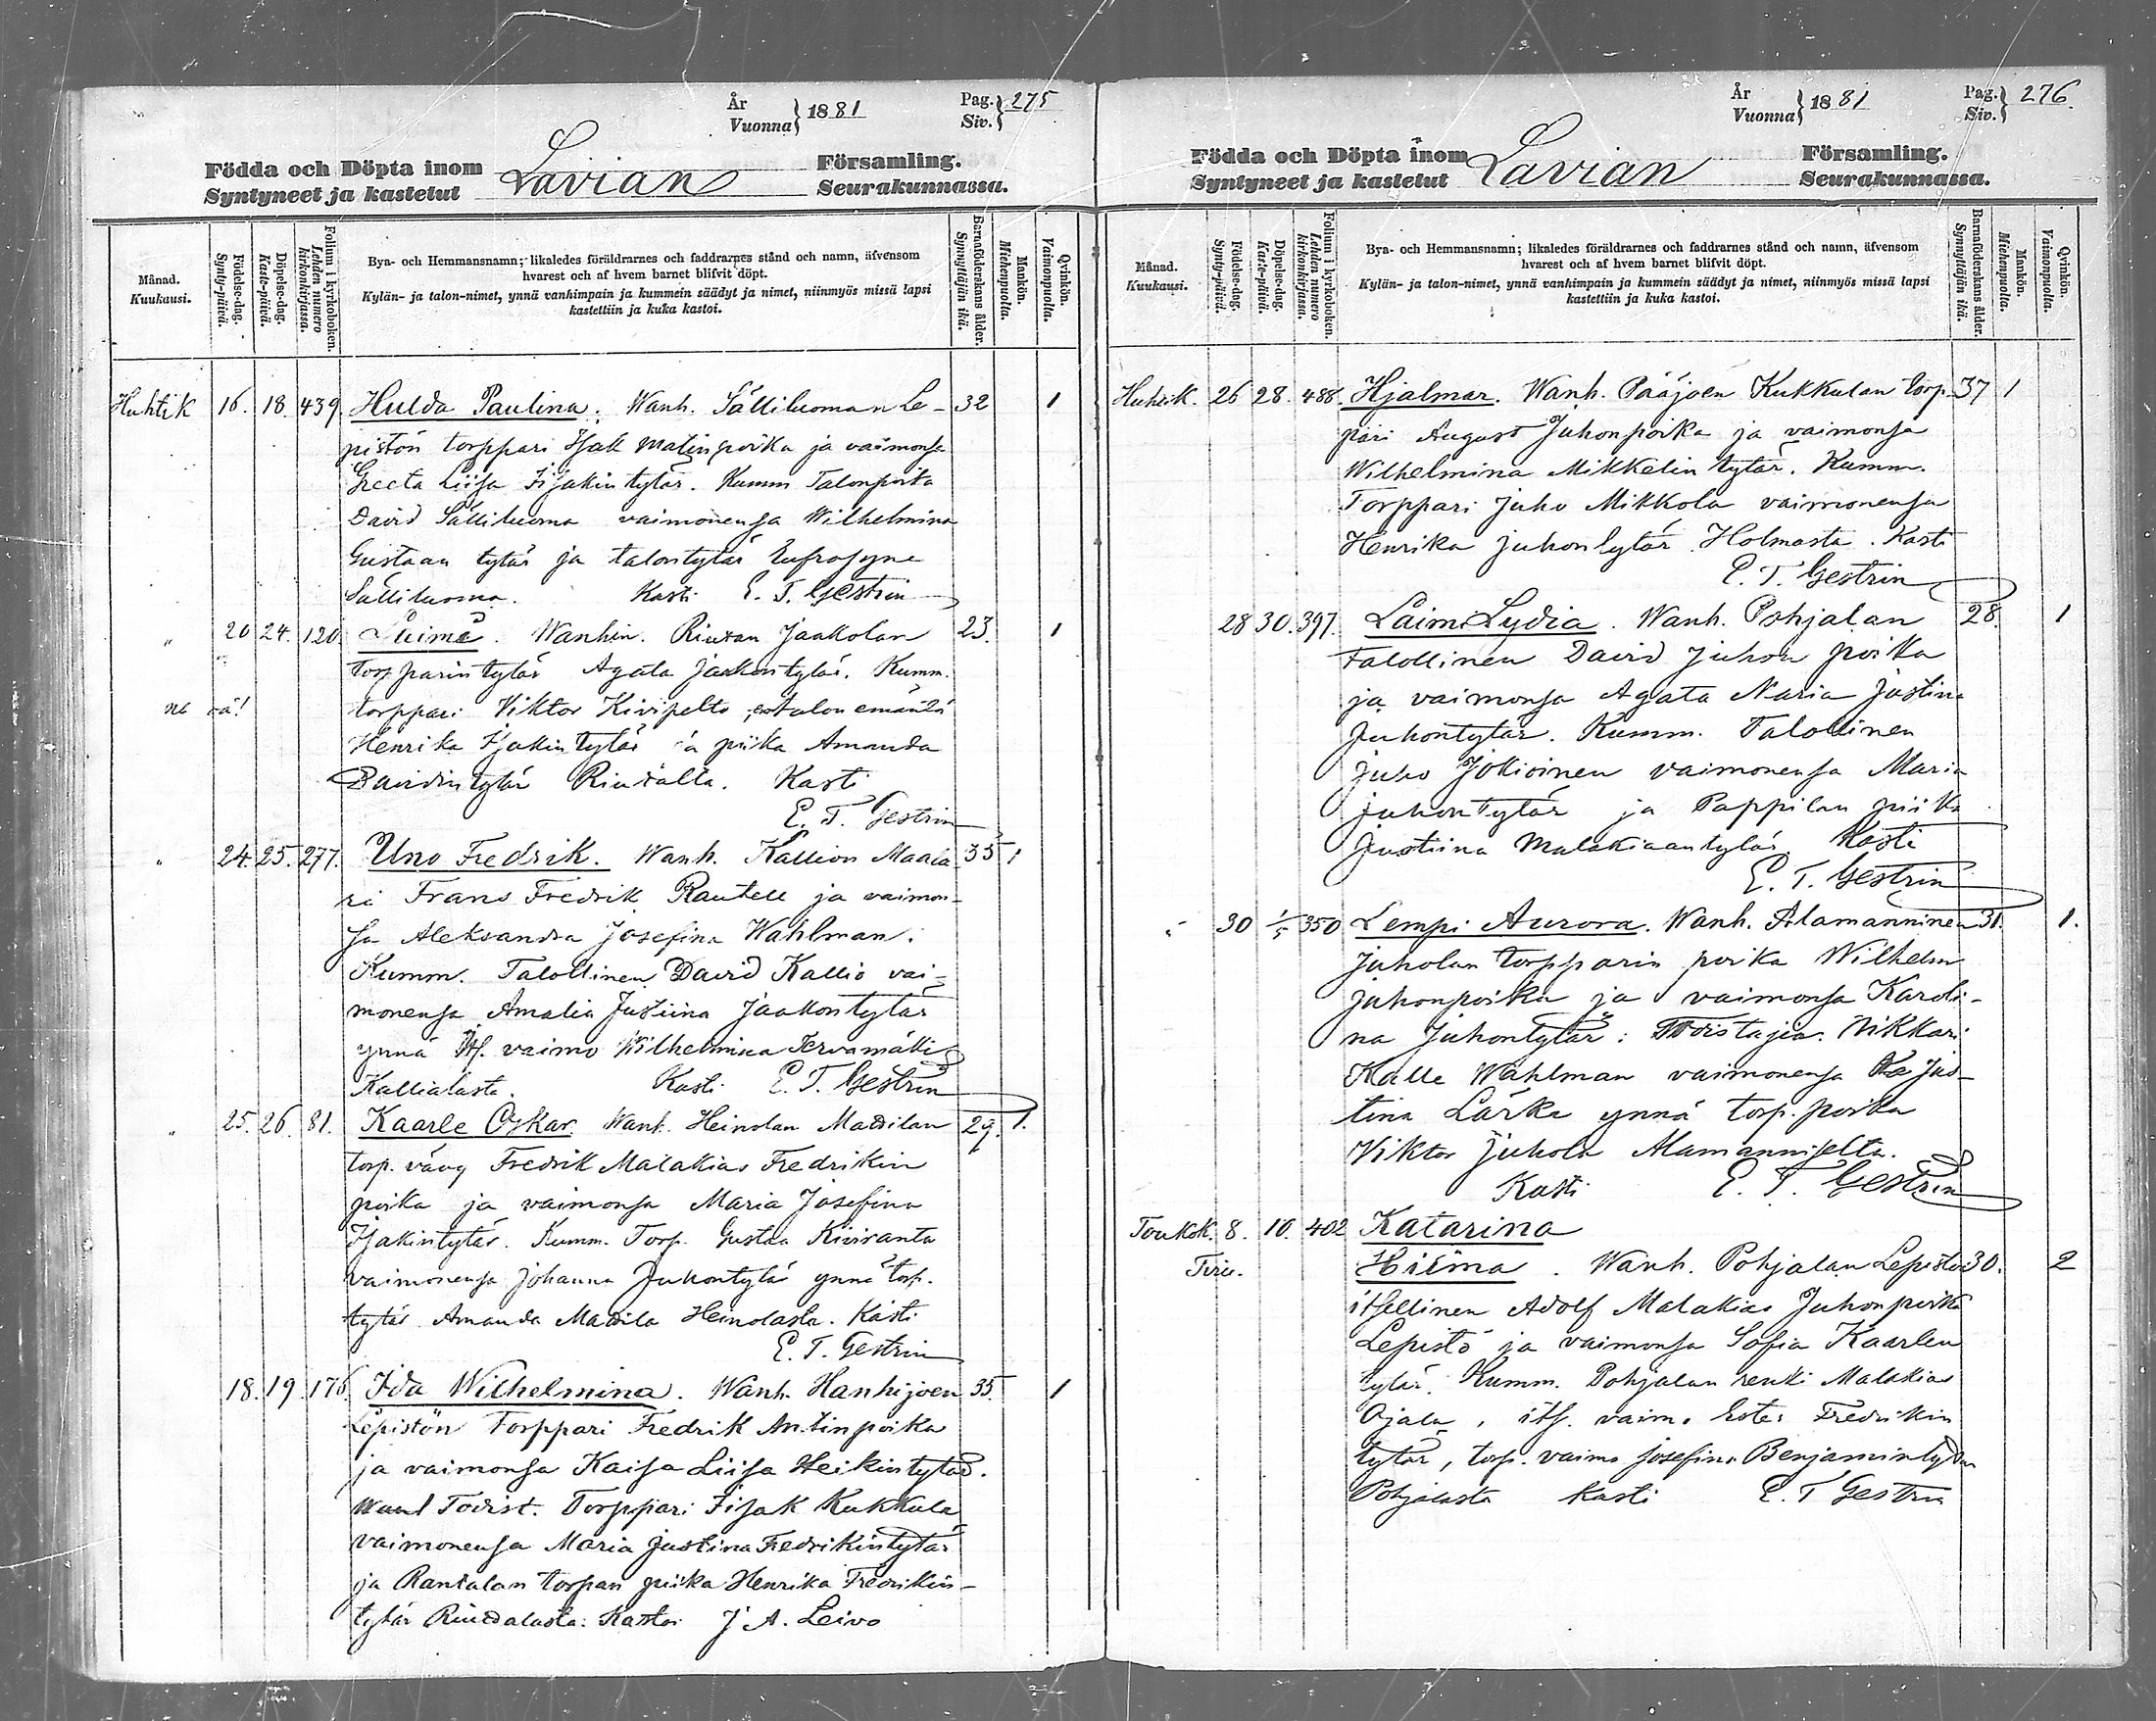 År
Vuonna } 1881
Pag.
Siv. } 275
Födda och Döpta inom
Syntyneet ja kastetut
Lavian
Församling.
Seurakunnassa.
Månad.
Kuukausi.
Födelse-dag.
Synty-päivä.
Döpelse-dag.
Kaste-päivä.
Folium i kyrkoboken.
Lehden numero
kirkonkirjassa.
Bya- och Hemmansnamn; likaledes föräldrarnes och faddrarnes stånd och namn, äfvensom
hvarest och af hvem barnet blifvit döpt.
Kylän- ja talon-nimet, ynnä vanhimpain ja kummein säädyt ja nimet, niinmyös missä lapsi
kastettiin ja kuka kastoi.
Barnaföderskans ålder.
Synnyttäjän ikä.
Mankön.
Miehenpuolta.
Qvinkön.
Vaimonpuolta.
Huhtik 16. 18. 439. Hulda Paulina. Wanh. Sälliluoman Le- 32 1
pistön torppari Isak Matinpoika ja vaimonsa
Greeta Liisa Iisakintytär. Kumm Talonpoika
David Sälliluoma vaimonensa Wilhelmina
Gustaan tytär ja talontytär Eufrosyne
Sälliluoma. Kasti E. T. Gestrin
" 20 24. 120. Wanhin. Jaakolan 23. 1
torpparintytär Agata Jaakontytär. Kumm.
torppari Viktor Kivipelto, talon emäntä
Henrika Isakintytär ja piika Amanda
Davidintytär Kasti
E. T. Gestrin
" 24. 25. 277. Uno Fredrik. Wanh. Kallion Maala 35 1
ri Frans Fredrik Rautell ja vaimon-
sa Aleksandra Josefina Wahlman.
Kumm. Talollinen David Kallio vai-
monensa Amalia Justiina Jaakontytär
ynnä Itf. vaimo Wilhelmina Tervamäki
Kallialasta. Kasti E. T. Gestrin
" 25. 26. 81. Kaarle Oskar. Wanh. Heinolan Mattilan 29. 1.
torp. vävy Fredrik Malakias Fredrikin
poika ja vaimonsa Maria Josefina
Isakintytär. Kumm. Torp. Gustaa Kiviranta
vaimonensa Johanna Juhontytär ynnä torp.
tytär Amanda Mattila Heinolasta. Kasti
E. T. Gestrin
18. 19. 176. Ida Wilhelmina. Wanh. Hanhijoen 35. 1
Lepistön Torppari Fredrik Antinpoika
ja vaimonsa Kaisa Liisa Heikintytär.
Todist. Torppari Iisak Kukkula
vaimonensa Maria Justina Fredrikintytär
ja Rantalan torpan piika Henrika Fredrikin-
tytär Kastoi J A. Leivo
År
Vuonna } 1881
Pag.
Siv. } 276.
Födda och Döpta inom
Syntyneet ja kastetut
Lavian
Församling.
Seurakunnassa.
Månad.
Kuukausi.
Födelse-dag.
Synty-päivä.
Döpelse-dag.
Kaste-päivä.
Folium i kyrkoboken.
Lehden numero
kirkonkirjassa.
Bya- och Hemmansnamn; likaledes föräldrarnes och faddrarnes stånd och namn, äfvensom
hvarest och af hvem barnet blifvit döpt.
Kylän- ja talon-nimet, ynnä vanhimpain ja kummein säädyt ja nimet, niinmyös missä lapsi
kastettiin ja kuka kastoi.
Barnaföderskans ålder.
Synnyttäjän ikä.
Mankön.
Miehenpuolta.
Qvinkön.
Vaimonpuolta.
Huhtik. 26 28. 488. Hjalmar. Wanh. Pääjoen Kukkulan torp- 37 1
pari August Juhonpoika ja vaimonsa
Wilhelmina Mikkelin tytär. Kumm.
Torppari Juho Mikkola vaimonensa
Henrika Juhontytär Holmasta. Kasti
E. T. Gestrin
28 30. 397. Laimi Lydia. Wanh. Pohjalan 28. 1
Talollinen David Juhon poika
ja vaimonsa Agata Maria Justina
Juhontytär. Kumm. Talollinen
Juho Jokioinen vaimonensa Maria
Juhontytär ja Pappilan piika
Justiina Malakiaantytär. Kasti
E. T. Gestrin
" 30 1/5 350 Lempi Aurora. Wanh. Alamanninen 31. 1.
Juholan torpparin poika Wilhelm
Juhonpoika ja vaimonsa Karoli-
na Juhontytär. Todistajia. Nikkari
Kalle Wahlman vaimonensa Jus-
tina Lärka ynnä torp. poika
Viktor Juhola Alamanniselta.
Kasti E. T. Gestrin
Toukok. 8. 10. 402 Katarina
Hilma. Wanh. Pohjalan Lepistön 30. 2
itsellinen Adolf Malakias Juhonpoika
Lepistö ja vaimonsa Sofia Kaarlen
tytär. Kumm. Pohjalan renki Malakias
Ojala, itf. vaimo Ester Fredrikin
tytär, torp. vaimo Josefina Benjamintytär
Pohjalasta Kasti E. T Gestrin